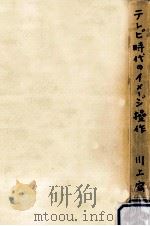 テレビ時代のイメージ操作
川上宏
www.toutu88.com